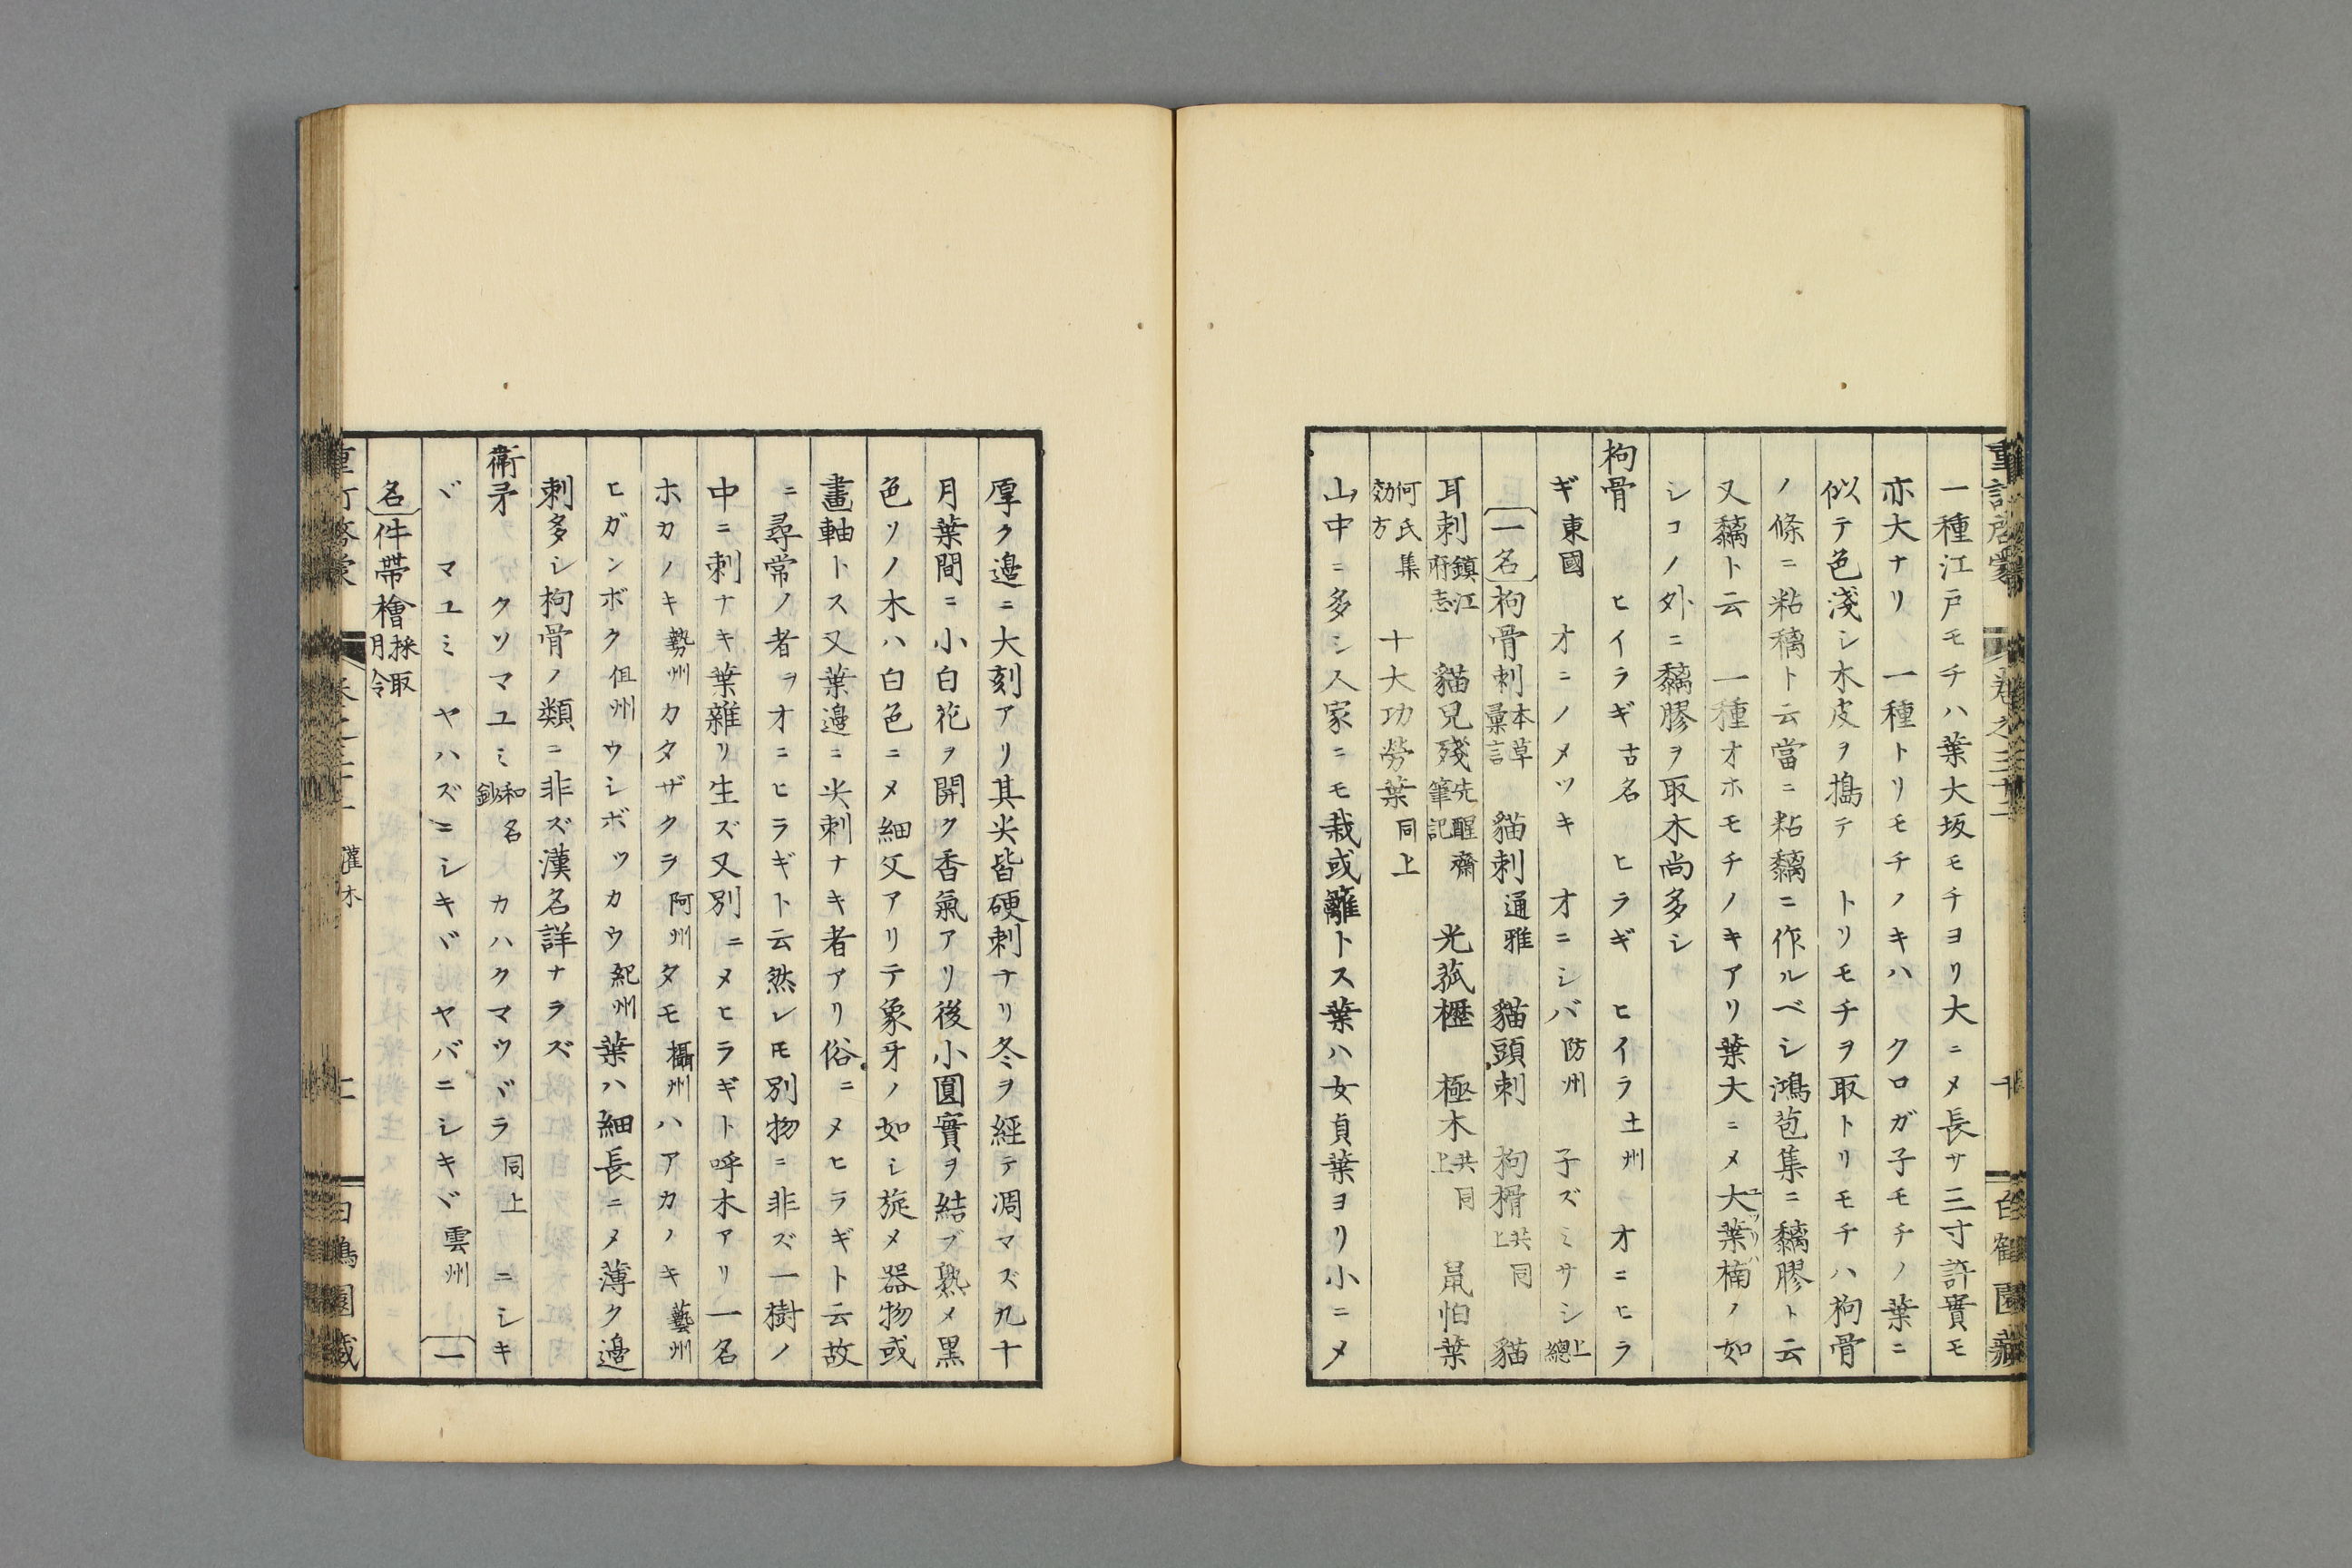 一種江戸モチハ葉大坂モチヨリ大ニメ長サ三寸許實モ
亦大ナリ 一種トリモチノキハ クロガ子モチノ葉ニ
似テ色淺シ木皮ヲ搗テ トリモチヲ取トリモチハ枸骨
ノ條ニ粘𥻿ト云當ニ粘黐ニ作ルベシ鴻苞集ニ黐膠ト云
又黐ト云 一種オホモチノキアリ葉大ニメ大葉楠ノ如
シコノ外ニ黐膠ヲ取木尚多シ
枸骨 ヒイラギ古名 ヒラギ ヒイラ土州 オニヒラ
ギ東國 オニノメツキ オニシバ防州 子ズミサシ上總
一名 枸骨刺本草彙言 貓刺通雅 貓頭刺 枸榾共同上 貓
耳刺鎮江府志 貓兒殘先醒齋筆記 光菰櫪 極木共同上 鼠怕葉
何氏集効方 十大功勞葉同上
山中ニ多シ人家ニモ栽或籬トス葉ハ女貞葉ヨリ小ニメ
重訂啓蒙 卷之三十二
厚ク邉ニ大刻アリ其尖皆硬刺ナリ冬ヲ經テ凋マズ九十
月葉間ニ小白花ヲ開ク香氣アリ後小圓實ヲ結ブ熟メ黒
色ソノ木ハ白色ニメ細文アリテ象牙ノ如シ旋メ器物或
畫軸トス又葉邉ニ尖刺ナキ者アリ俗ニメヒラギト云故
ニ尋常ノ者ヲオニヒラギト云然レ𪜈別物ニ非ズ一樹ノ
中ニ刺ナキ葉雜リ生ズ又別ニメヒラギト呼木アリ一名
ホカノキ勢州 カタザクラ阿州 タモ攝州 ハアカノキ藝州
ヒガンボク但州 ウシボツカウ紀州 葉ハ細長ニメ薄ク邉
刺多シ枸骨ノ類ニ非ズ漢名詳ナラズ
衞矛 クソマユミ和名鈔 カハクマツヾラ同上 ニシキ
ヾ マユミ ヤハズニシキヾ ヤバニシキヾ雲州 一
名 件帶檜採取月令
灌木